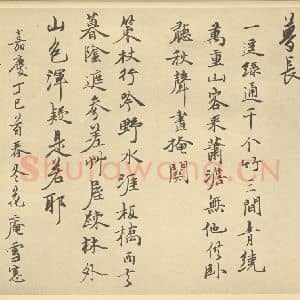 長
一逕綠通千个竹三間青繞
萬重山客來蕭澹無他供臥
聽秋聲晝掩關
策杖行吟野水涯板橋西去
暮陰遮參差艸屋疎林外
山色渾疑是若耶
嘉慶丁巳首春冬花庵雪窓
Shufawang.CN